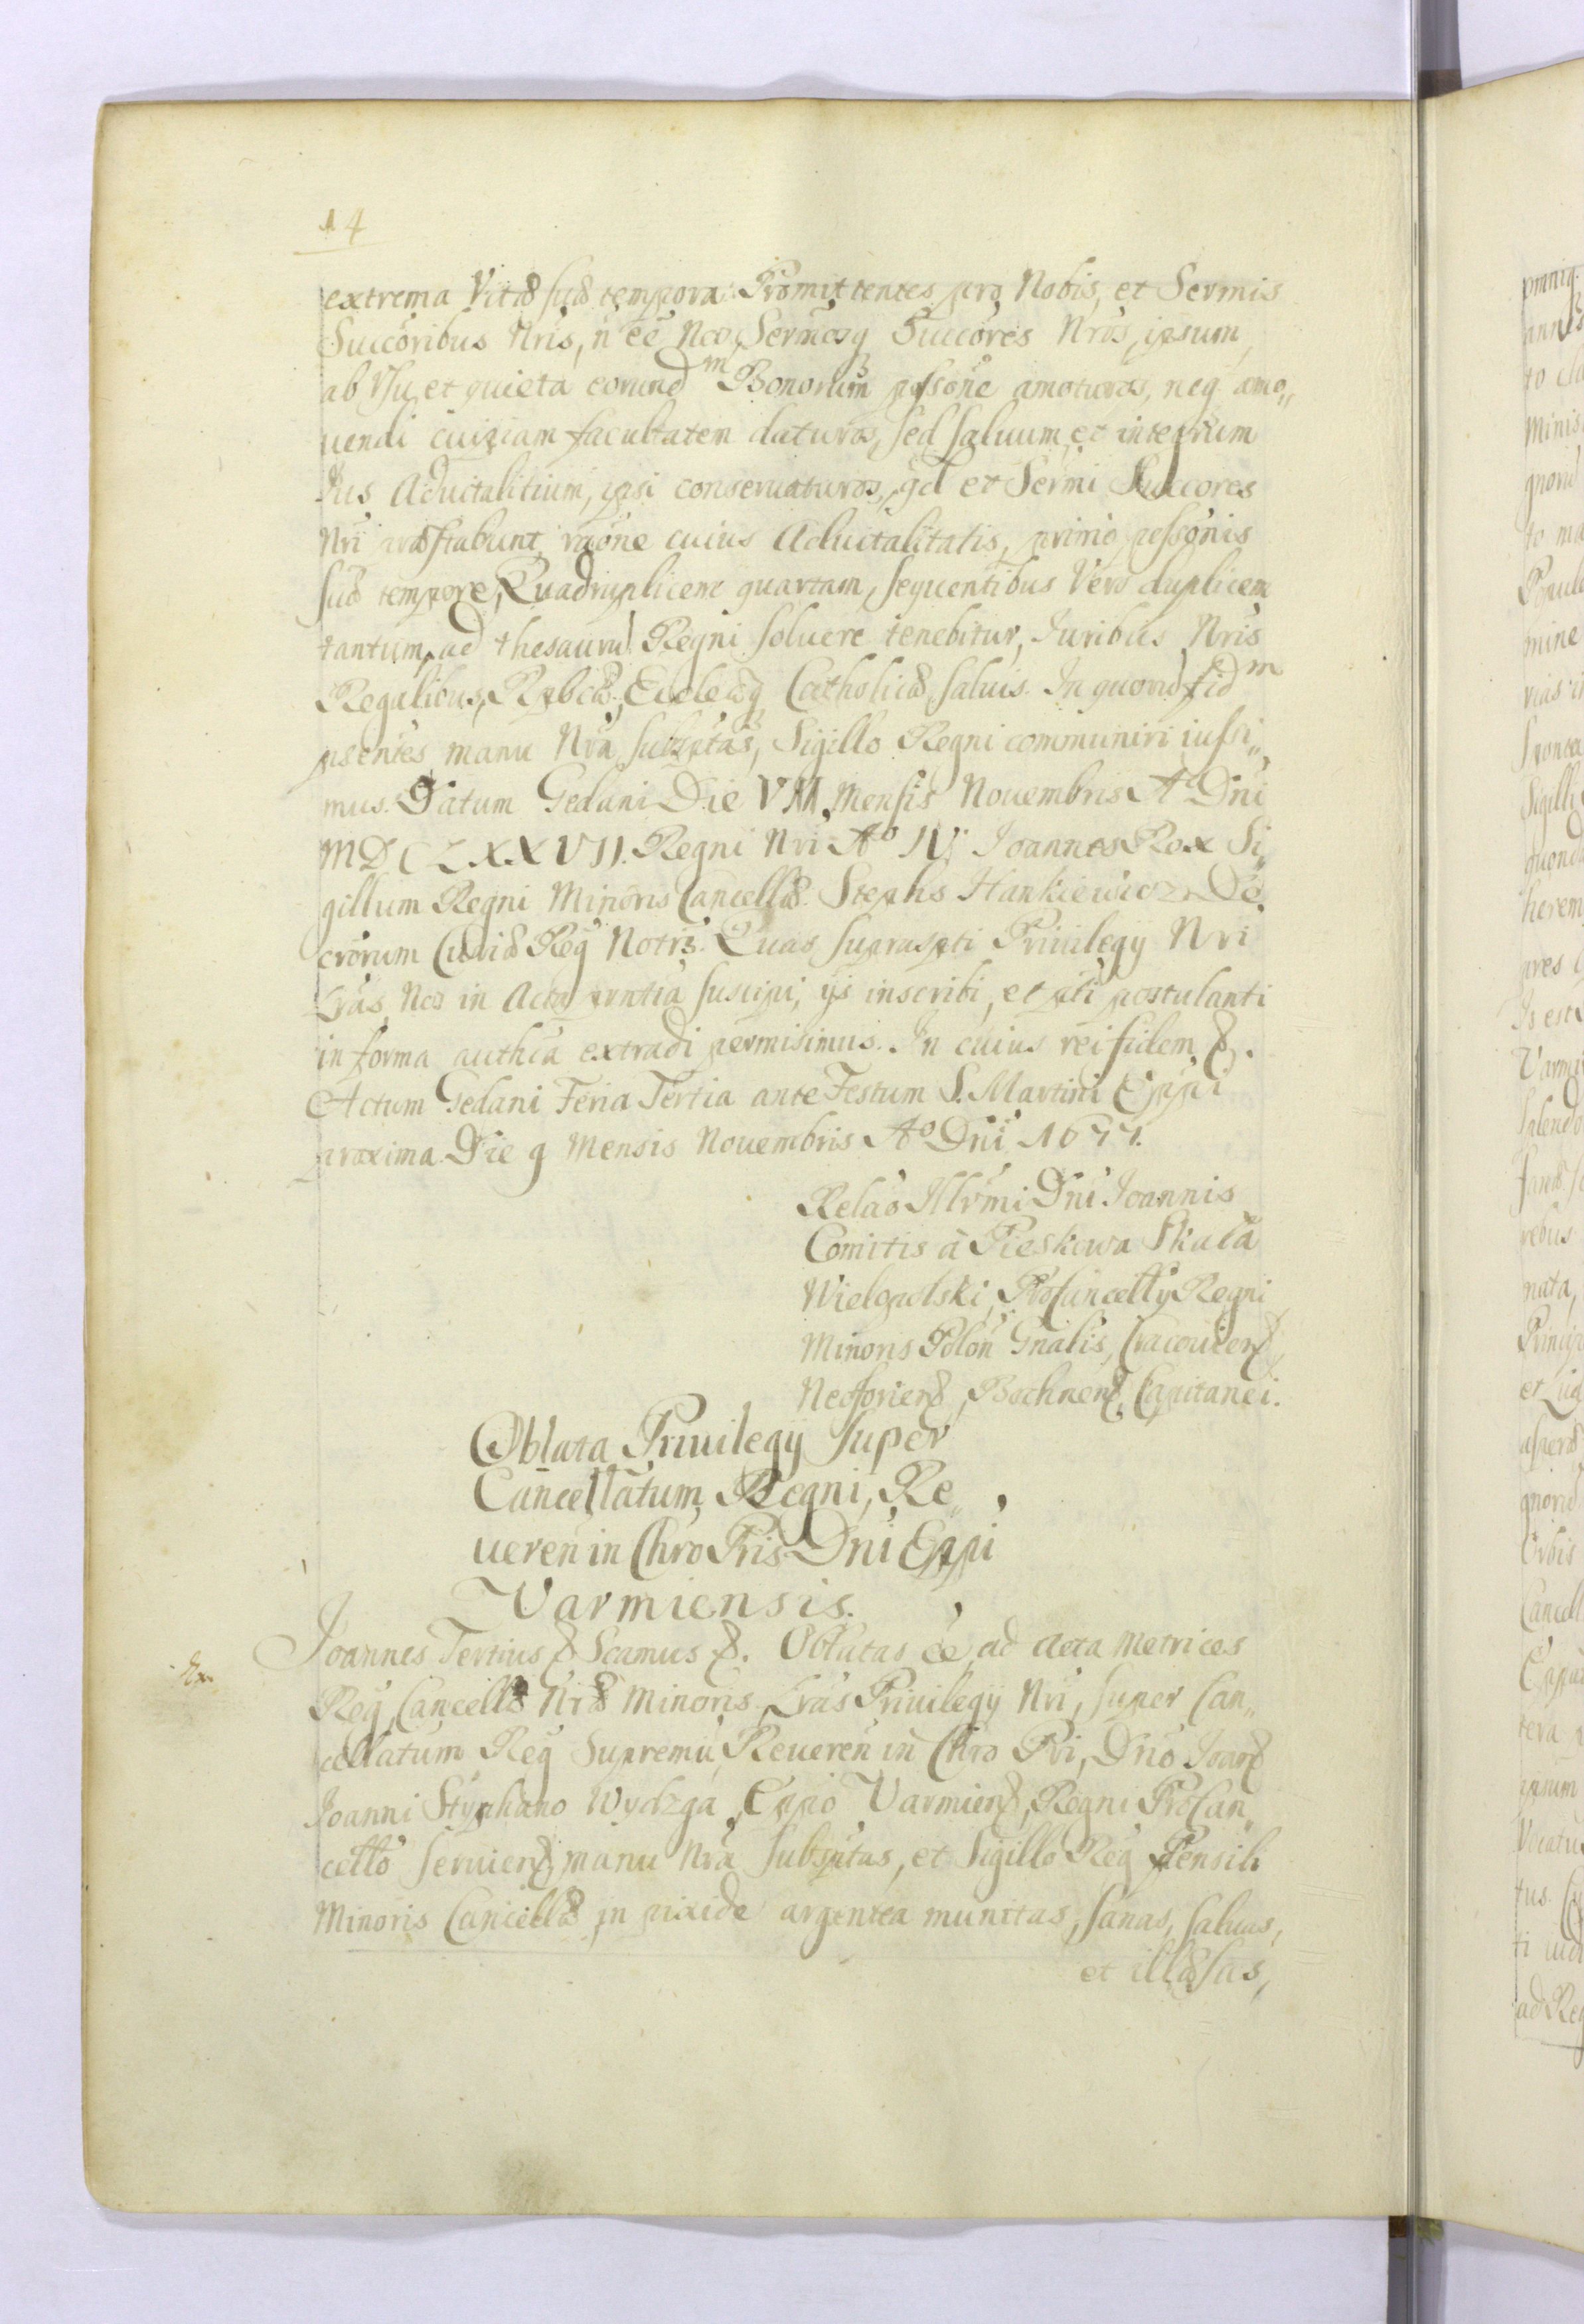 14
extrema Vitæ suæ tempora. Promittentes pro Nobis, et Sermis
Succoribus Nris, n ee Nos, Sermosq Succores Nros, ipsum,
ab Vsu, et quieta eorund^m Bonorum pssone amoturos, neq amo„
uendi cuiqiam facultatem daturos, sed saluum, et integrum
Ius Aduitalitium, ipsi conseruaturos, qd et Sermi Succores
Nri præstabunt, raone cuius Aduitalitatis, primo pessonis
suæ tempore, Quadruplicem quartam, sequentibus Vero duplicem
tantum, ad thesauru Regni soluere tenebitur, Iuribus Nris
Regalibus, Rpbcæ, Ecclæq Catholicæ saluis. In quoru fid^m
psentes manu Nra subsptas, Sigillo Regni communiri iussi„
mus. Datum Gedani Die VIII Mensis Nouembris Aº Dni
MDCLXXVII. Regni Nri Aº IV. Joannes Rex Si„
gillum Regni Minoris Cancellæ. Stephs Hankiewicz De„
crorum Curiæ Reg Notrs. Quas supraspti Priuilegy Nri
Lras, Nos in Acta prntia suscipi, ijs inscribi, et pti postulanti
in forma authca extradi permisimus. In cuius rei fidem &.
Actum Gedani Feria Tertia ante Festum S. Martini Eppi
proxima. Die 9 Mensis Nouembris Aº Dni 1677.
Relao Illrmi Dni Joannis
Comitis à Pieskowa Skała
Wielopolski, ProCancelly Regni
Minoris Polon Gnalis, Cracouien,
Neoforien, Bochnen, Capitanei.
Oblata Priuilegij super
Cancellatum Regni, Re„
ueren in Chro Pris Dni Eppi
Varmiensis.
Joannes Tertius & Scamus &. Oblatas ee, ad Acta Metrices
Reg, Cancellæ Nræ Minoris. Lras Priuilegij Nri, super Can„
cellatum Reg Supremu, Reueren in Chro Pri, Dno Joan
Joanni Stephano Wydzga, Eppo Varmien, Regni ProCan„
cello seruien, manu Nra Subsptas, et Sigillo Reg Pensili
Minoris Cancellæ in pixide argentea munitas, sanas, saluas,
et illæsas,